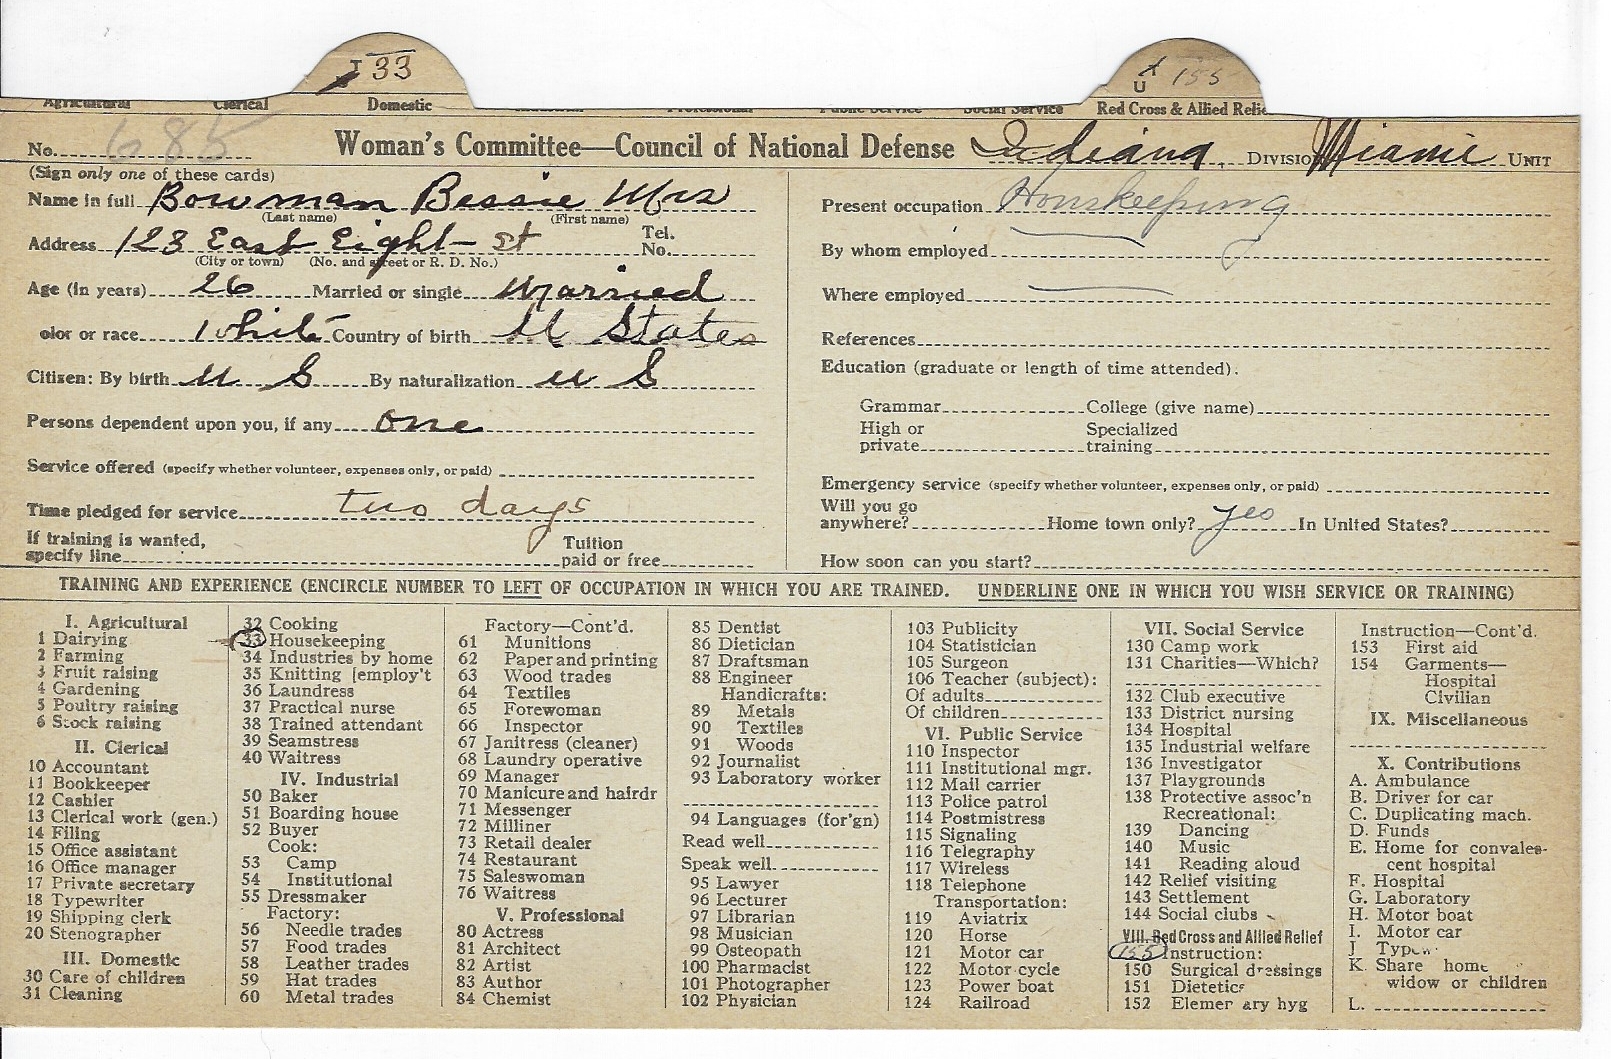 T 33
X 155
U
Agricultural Clerical Domestic Industrial Professional Public Service Social Service Red Cross & Allied Relie
No. 685 Woman's Committee—Council of National Defense Indiana. DIVISION Miami UNIT
(Sign only one of these cards)
Name in full Bowman Bessie Mrs
(Last name) (First name)
Address 123 East Eight st Tel. No.
(City or town) (No. and street or R. D. No.)
Age (in years) 26 Married or single Married
olor or race White Country of birth U States
Citizen: By birth U S By naturalization U S
Persons dependent upon you, if any one
Service offered (specify whether volunteer, expenses only, or paid)
Time pledged for service two days
If training is wanted, specify line Tuition paid or free
Present occupation Houskeeping
By whom employed
Where employed
References
Education (graduate or length of time attended).
Grammar College (give name)
High or private Specialized training
Emergency service (specify whether volunteer, expenses only, or paid)
Will you go anywhere? Home town only? yes In United States?
How soon can you start?
TRAINING AND EXPERIENCE (ENCIRCLE NUMBER TO LEFT OF OCCUPATION IN WHICH YOU ARE TRAINED. UNDERLINE ONE IN WHICH YOU WISH SERVICE OR TRAINING)
I. Agricultural
1 Dairying
2 Farming
3 Fruit raising
4 Gardening
5 Poultry raising
6 Stock raising
II. Clerical
10 Accountant
11 Bookkeeper
12 Cashier
13 Clerical work (gen.)
14 Filing
15 Office assistant
16 Office manager
17 Private secretary
18 Typewriter
19 Shipping clerk
20 Stenographer
III. Domestic
30 Care of children
31 Cleaning
32 Cooking
33 Housekeeping
34 Industries by home
35 Knitting [employ't
36 Laundress
37 Practical nurse
38 Trained attendant
39 Seamstress
40 Waitress
IV. Industrial
50 Baker
51 Boarding house
52 Buyer
Cook:
53 Camp
54 Institutional
55 Dressmaker
Factory:
56 Needle trades
57 Food trades
58 Leather trades
59 Hat trades
60 Metal trades
Factory—Cont'd.
61 Munitions
62 Paper and printing
63 Wood trades
64 Textiles
65 Forewoman
66 Inspector
67 Janitress (cleaner)
68 Laundry operative
69 Manager
70 Manicure and hairdr
71 Messenger
72 Milliner
73 Retail dealer
74 Restaurant
75 Saleswoman
76 Waitress
V. Professional
80 Actress
81 Architect
82 Artist
83 Author
84 Chemist
85 Dentist
86 Dietician
87 Draftsman
88 Engineer
Handicrafts:
89 Metals
90 Textiles
91 Woods
92 Journalist
93 Laboratory worker
94 Languages (for'gn)
Read well
Speak well
95 Lawyer
96 Lecturer
97 Librarian
98 Musician
99 Osteopath
100 Pharmacist
101 Photographer
102 Physician
103 Publicity
104 Statistician
105 Surgeon
106 Teacher (subject):
Of adults
Of children
VI. Public Service
110 Inspector
111 Institutional mgr.
112 Mail carrier
113 Police patrol
114 Postmistress
115 Signaling
116 Telegraphy
117 Wireless
118 Telephone
Transportation:
119 Aviatrix
120 Horse
121 Motor car
122 Motor cycle
123 Power boat
124 Railroad
VII. Social Service
130 Camp work
131 Charities—Which?
132 Club executive
133 District nursing
134 Hospital
135 Industrial welfare
136 Investigator
137 Playgrounds
138 Protective assoc'n
Recreational:
139 Dancing
140 Music
141 Reading aloud
142 Relief visiting
143 Settlement
144 Social clubs
VIII. Red Cross and Allied Relief
155 Instruction:
150 Surgical dressings
151 Dietetics
152 Elemer ary hyg
Instruction—Cont'd.
153 First aid
154 Garments—
Hospital
Civilian
IX. Miscellaneous
X. Contributions
A. Ambulance
B. Driver for car
C. Duplicating mach.
D. Funds
E. Home for convales-
cent hospital
F. Hospital
G. Laboratory
H. Motor boat
I. Motor car
J Typew
K. Share home
widow or children
L.